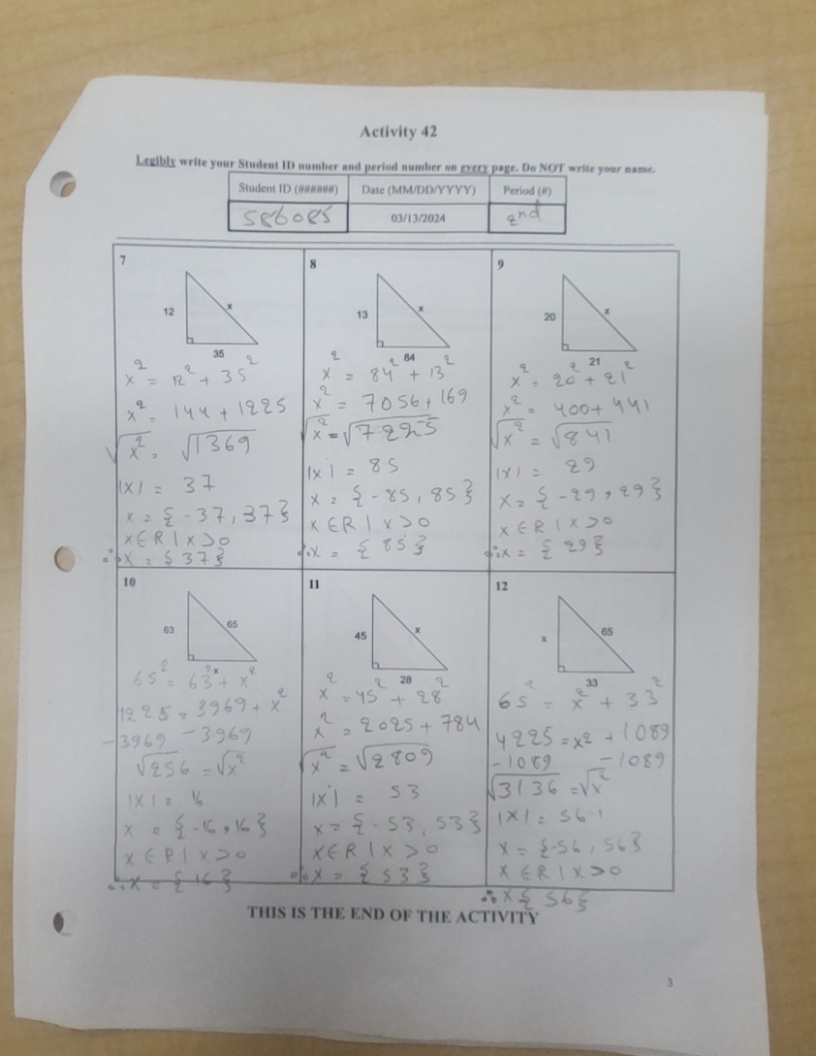 Activity 42
Legibly write your Student ID number and period number on every page. Do NOT write your name.
Student ID (######) Date (MM/DD/YYYY) Period (#)
586085 03/13/2024 2nd
7
12
x
35
x² = 12² + 35²
x² = 144 + 1225
√x² = √1369
|x| = 37
x = {-37, 37}
x ∈ R | x > 0
∴ x = {37}
8
13
x
84
x² = 84² + 13²
x² = 7056 + 169
√x² = √7225
|x| = 85
x = {-85, 85}
x ∈ R | x > 0
∴ x = {85}
9
20
x
21
x² = 20² + 21²
x² = 400 + 441
√x² = √841
|x| = 29
x = {-29, 29}
x ∈ R | x > 0
∴ x = {29}
10
63
65
x
65² = 63² + x²
4225 = 3969 + x²
-3969 -3969
√256 = √x²
|x| = 16
x = {-16, 16}
x ∈ R | x > 0
∴ x = {16}
11
45
x
28
x² = 45² + 28²
x² = 2025 + 784
√x² = √2809
|x| = 53
x = {-53, 53}
x ∈ R | x > 0
∴ x = {53}
12
x
65
33
65² = x² + 33²
4225 = x² + 1089
-1089 -1089
√3136 = √x²
|x| = 56
x = {-56, 56}
x ∈ R | x > 0
∴ x {56}
THIS IS THE END OF THE ACTIVITY
3